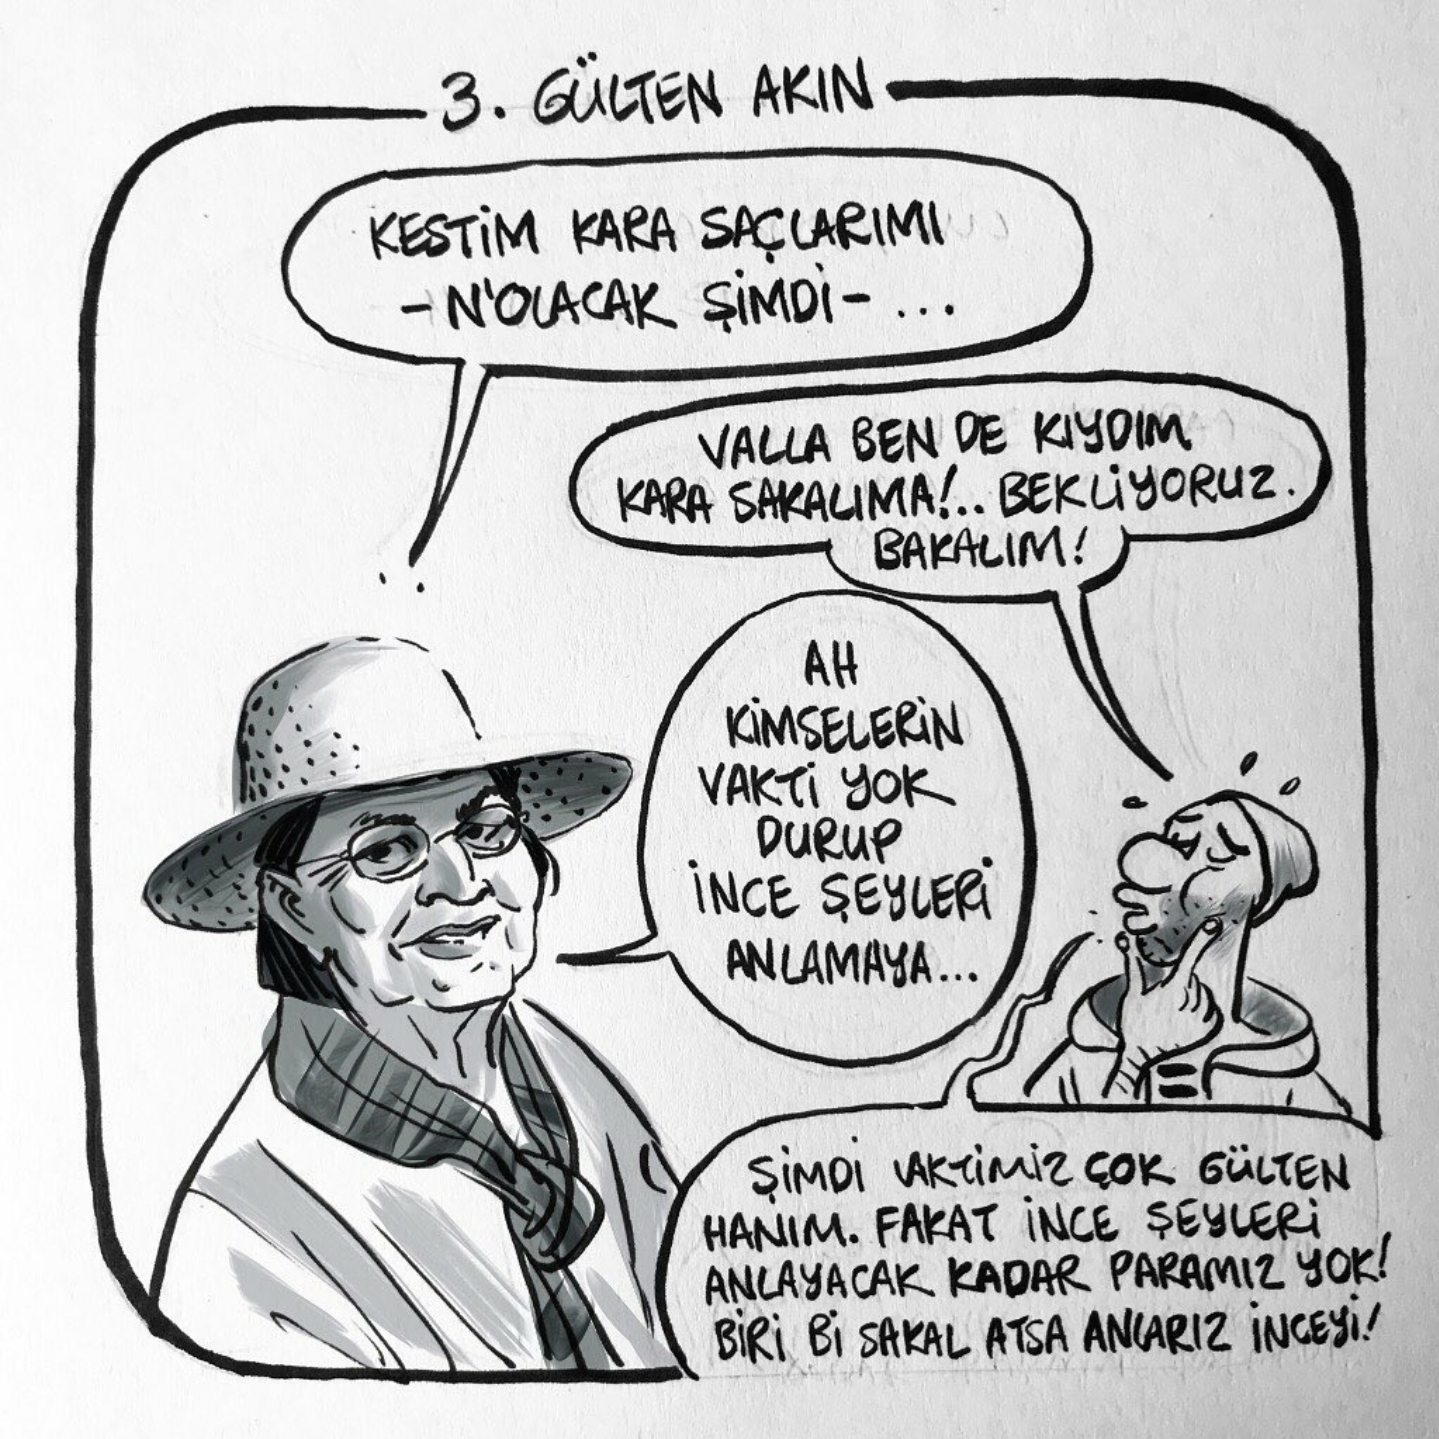 3. GÜLTEN AKIN
KESTİM KARA SAÇLARIMI
- N'OLACAK ŞİMDİ - ...
VALLA BEN DE KIYDIM
KARA SAKALIMA!.. BEKLİYORUZ.
BAKALIM!
AH
KİMSELERİN
VAKTİ YOK
DURUP
İNCE ŞEYLERİ
ANLAMAYA...
ŞİMDİ VAKTİMİZ ÇOK GÜLTEN
HANIM. FAKAT İNCE ŞEYLERİ
ANLAYACAK KADAR PARAMIZ YOK!
BİRİ Bİ SAKAL ATSA ANLARIZ İNCEYİ!